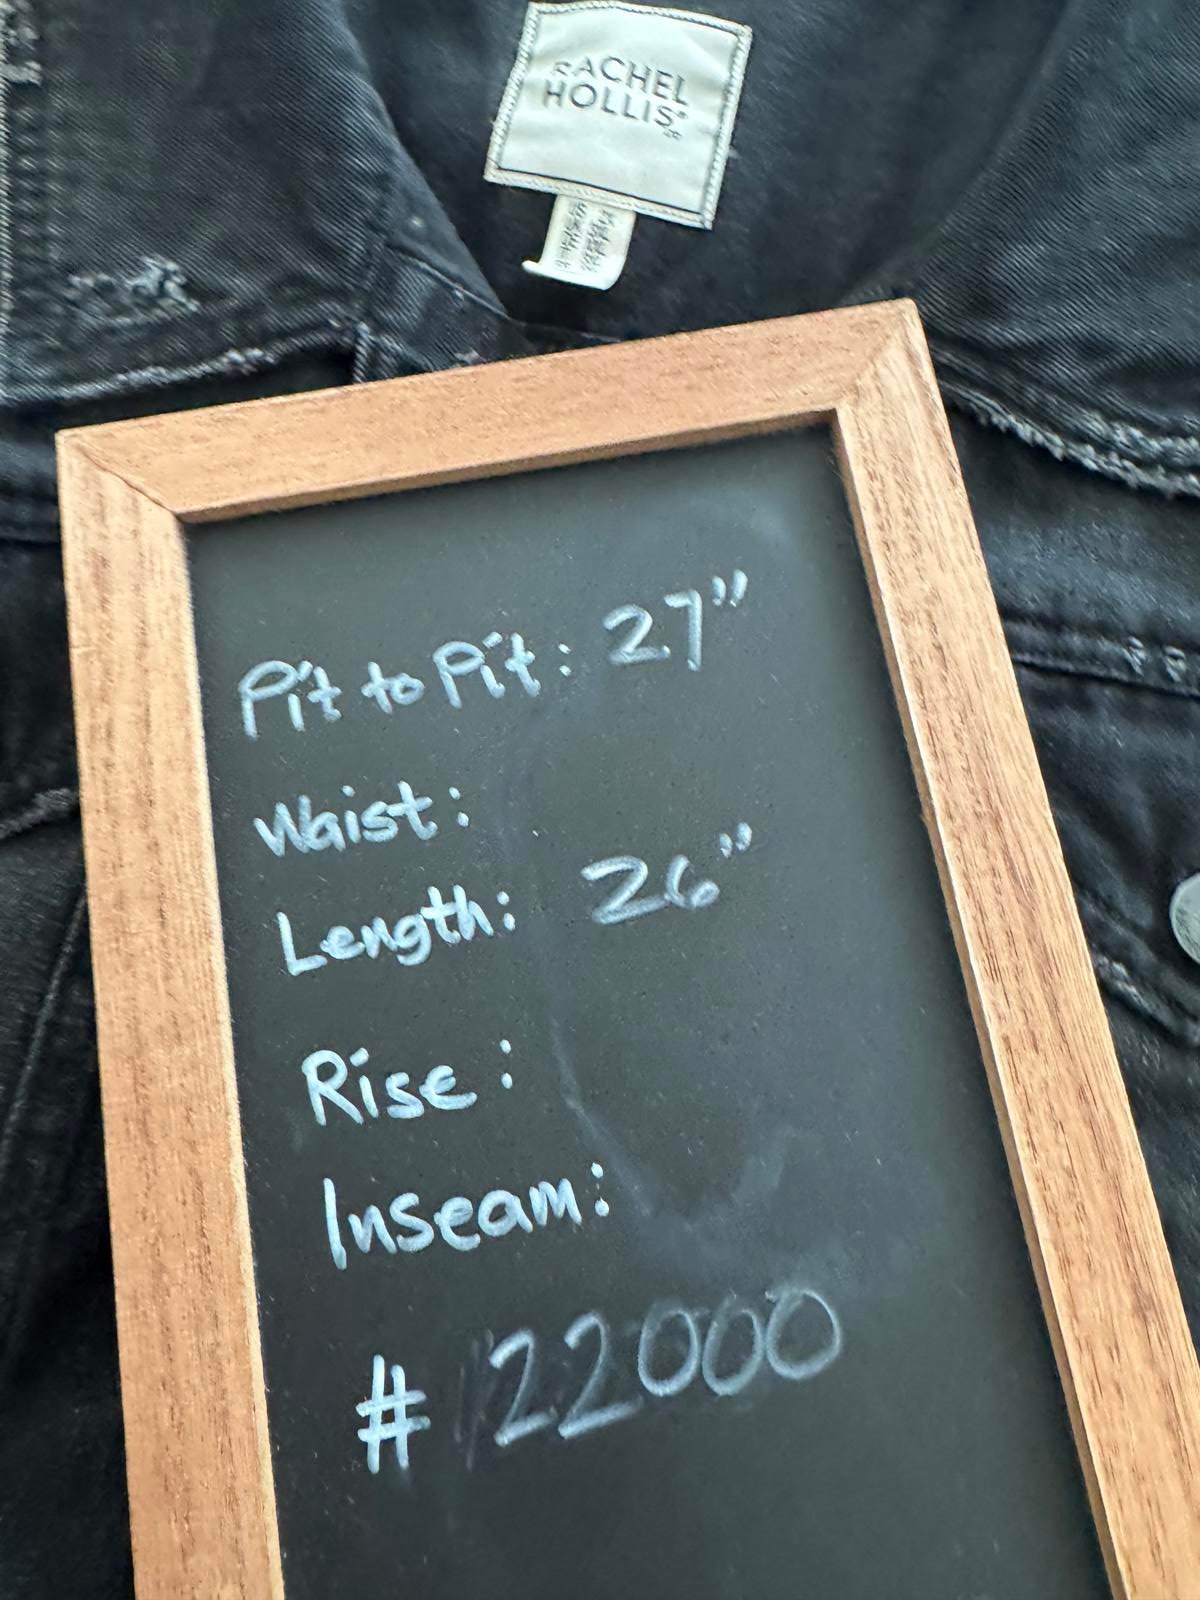 RACHEL
HOLLIS®
Pit to Pit: 27"
Waist:
Length: 26"
Rise:
Inseam:
# 22000